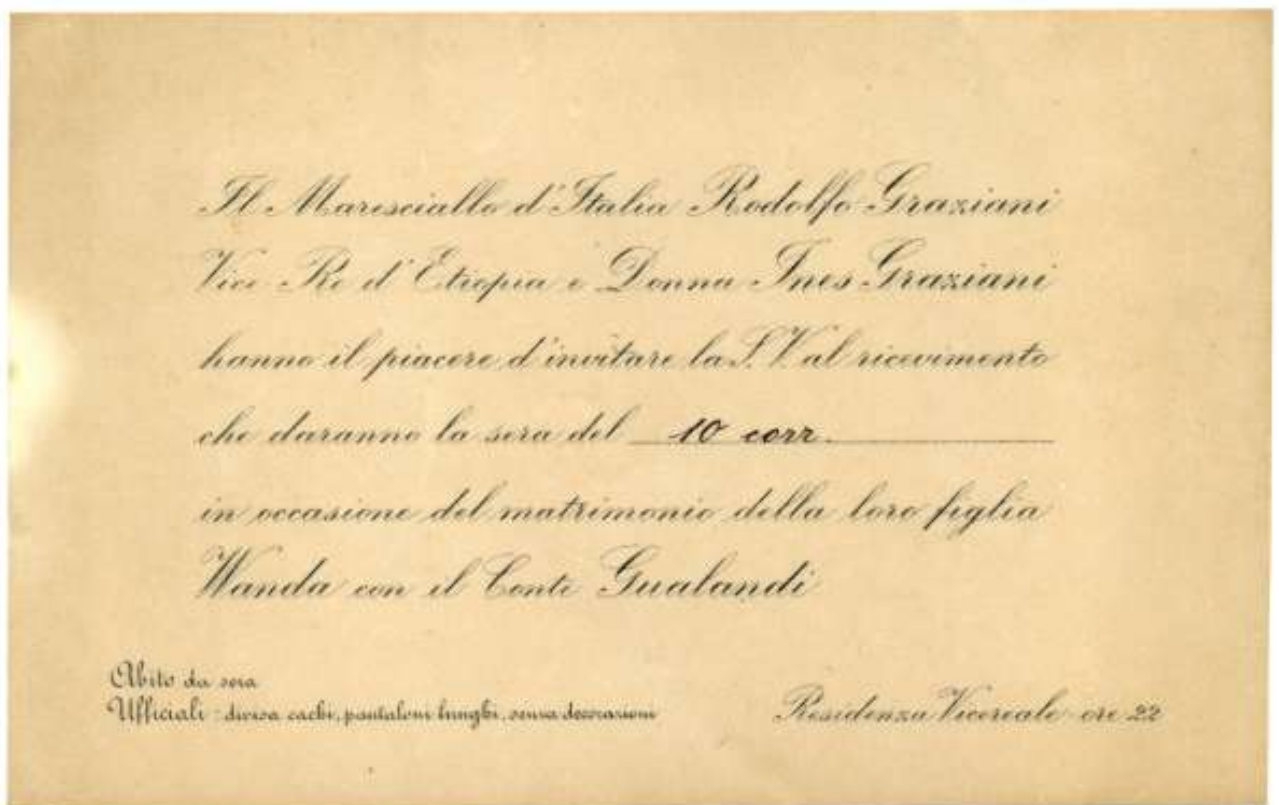 Il Maresciallo d'Italia Rodolfo Graziani
Vice Re d'Etiopia e Donna Ines Graziani
hanno il piacere d'invitare la S.V. al ricevimento
che daranno la sera del 10 corr.
in occasione del matrimonio della loro figlia
Wanda con il Conte Gualandi
Abito da sera
Ufficiali: divisa cachi, pantaloni lunghi, senza decorazioni
Residenza Vicereale - ore 22